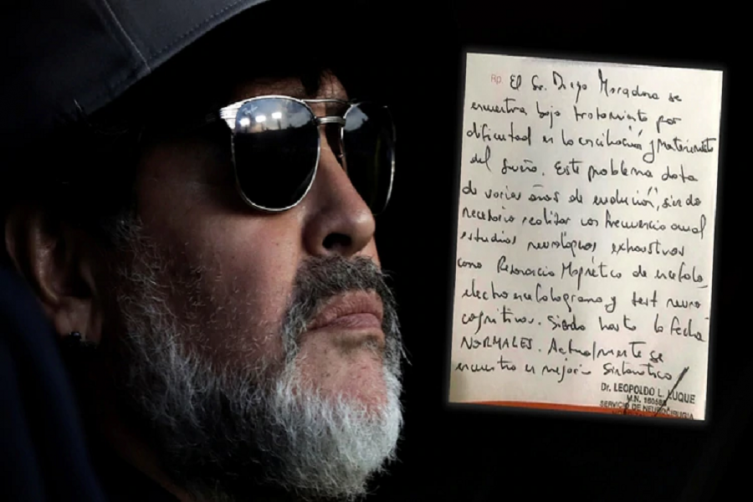 Rp.
El Sr. Diego Maradona se
encuentra bajo tratamiento por
dificultad en la conciliación y mantenimiento
del sueño. Este problema data
de varios años de evolución, siendo
necesario realizar con frecuencia anual
estudios neurológicos exhaustivos
como Resonancia Magnética de encefalo,
electroencefalograma y test neuro
cognitivos. Siendo hasta la fecha
NORMALES. Actualmente se
encuentra en mejoría sintomática
Dr. LEOPOLDO L. LUQUE
M.N.
SERVICIO DE NEUROCIRUGIA